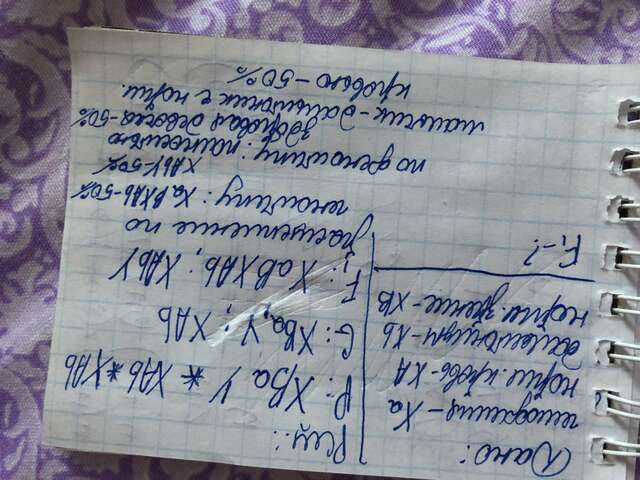 Дано:
гемофилия - Xa
норм. кровь - XA
дальтонизм - Xb
норм. зрение - XB
F₁ - ?
Реш.:
P: XBa Y * XAb * XAb
G: XBa, Y; XAb
F₁: XaB XAb; XAb Y
расщепление по
генотипу: XaB XAb - 50%
XAbY - 50%
по фенотипу: полностью
здоровая девочка - 50%
мальчик - дальтоник с норм.
кровью - 50%